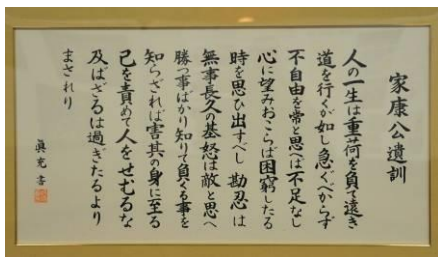 家康公遺訓
人の一生は重荷を負て遠き
道を行くが如し急ぐべからず
不自由を常と思へば不足なし
心に望みおこらば困窮したる
時を思ひ出すべし 勘忍は
無事長久の基怒は敵と思へ
勝つ事ばかり知りて負くる事を
知らざれば害其の身に至る
己を責めて人をせむるな
及ばざるは過ぎたるより
まされり
書